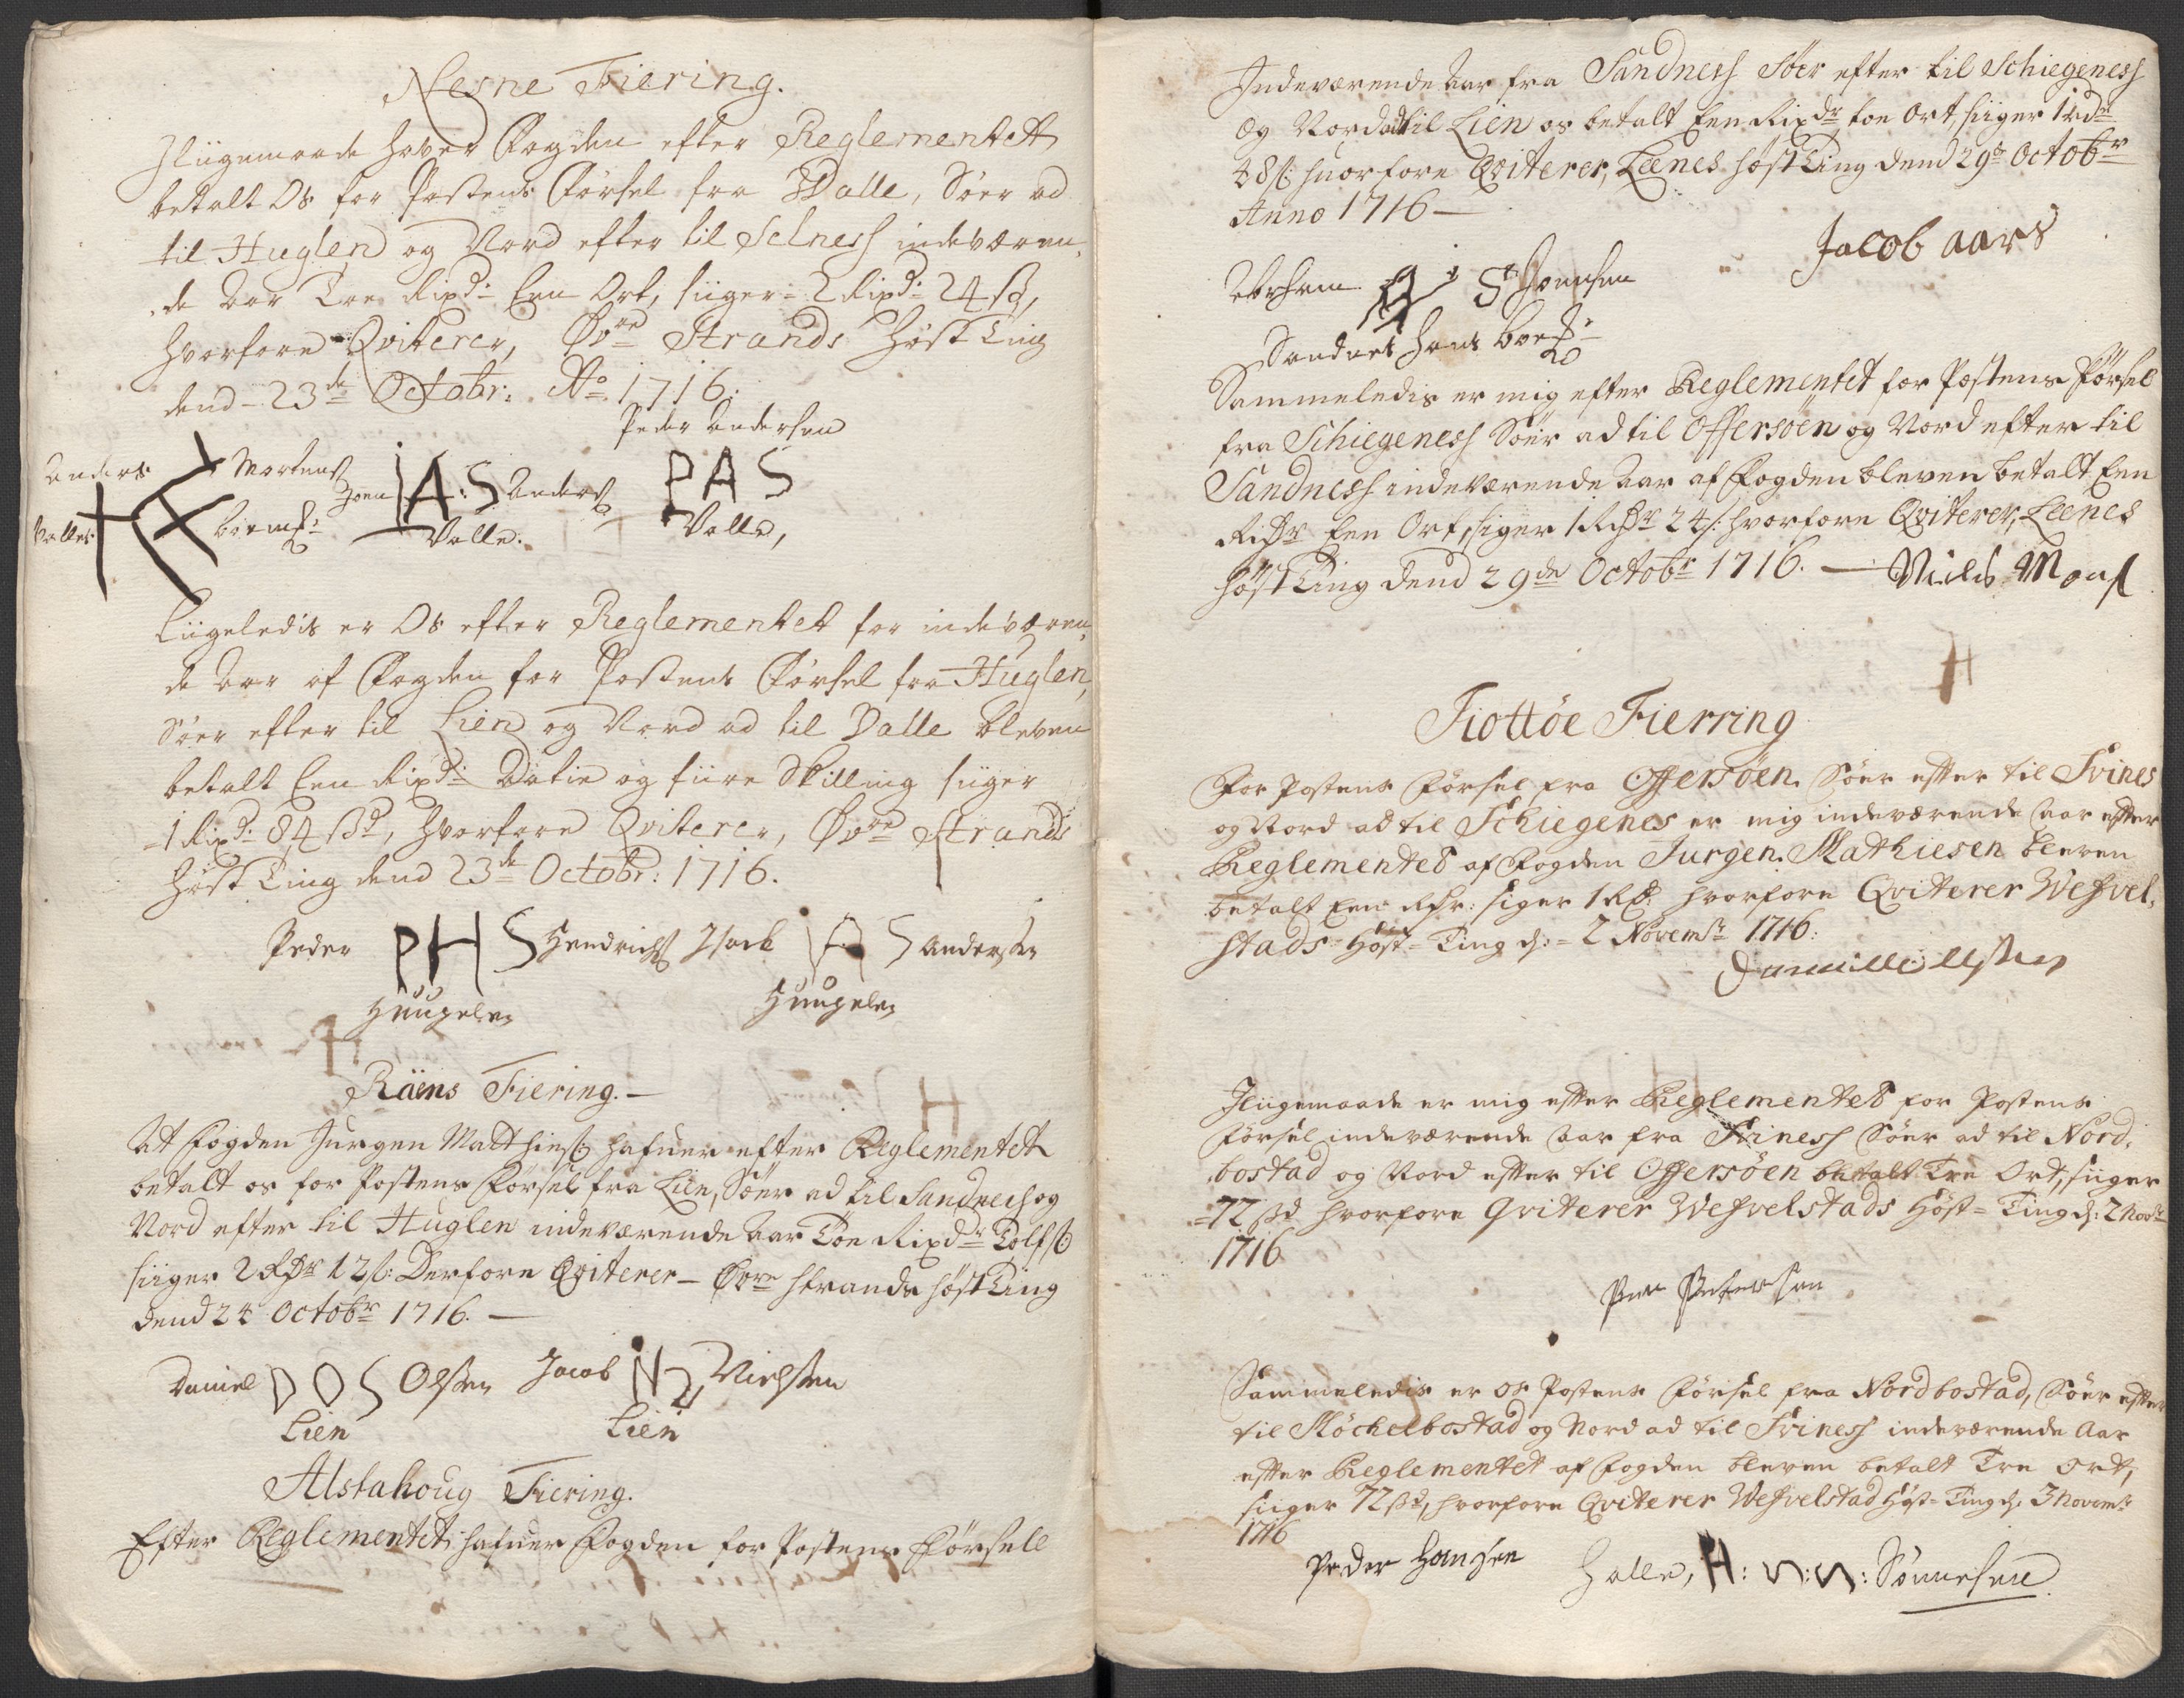 Nesne Fiering.
Iliigemaade haver Fogden efter Reglementet
betalt Os for Postens Förhsel fra Valle, Söer ad
til Huglen og Nord efter til Selness indeværen,
de Aar Toe Rixdr: Een Ort, siiger = 2 Rixdr: 24 ß,
hvorfore Qviterer, Øvre Strands Höst Ting
dend 23de Octobr: Ao 1716.
Peder Andersen
Anders Mortens
Joen IA:S Anders PAS
Valle Valle. Valle,
Liigeledis er Os efter Reglementet for indeværen,
de Aar af Fogden for Postens Förhsel fra Huglen,
Söer efter til Lien og Nord ad til Valle bleven
betalt Een Rixdr: Otatie og fiire Skilling siiger
= 1 Rixdr: 84 ßd, hvorfore Qviterer, Øvre Strands
Höst Ting dend 23de Octobr: 1716.
Peder PHS Hendrichs Isach IAS Andersen
Huuglen Huuglen
Räens Fiering.
At Fogden Jurgen Matthies hafuer efter Reglementet
betalt os for Postens Forsel fra Lien, Söer ad til Sandnes og
Nord efter til Huglen indeværende Aar Toe Rixdr Tolf ß
siiger 2 Rdr 12 ß: Derfore Qviterer – Øvre Strands höst Ting
dend 24 Octobr 1716. –
Daniel DOS Olsen Jacob INS Nielsen
Lien Lien
Alstahoug Fiering.
Efter Reglementet hafuer Fogden for Postens Försell
Indeværende Aar fra Sandness Söer efter til Schiegeness
og Nord ad til Lien os betalt Een Rixdr toe Ort siiger 1 rdr
48 ß: huorfore Qviterer, Leenes höst Ting dend 29de Octobr
Anno 1716 –
Jacob aars
Joensen
Sandnes
Sammeledis er mig efter Reglementet for Postens Försel
fra Schiegeness Söer ad til Offersöen og Nord efter til
Sandness indeværende Aar af Fogden bleven betalt Een
Rdr Een Ort, siger 1 Rdr 24 ß: hvorfore Qviterer, Leenes
höst Ting dend 29de Octobr 1716. – Niels Mons
Tiottöe Fierring
For Postens Försel fra Offersöen Söer efter til Svines
og Nord ad til Schiegenes er mig indeværende Aar efter
Reglementet af Fogden Jurgen Mathiesen bleven
betalt Een Rdr: siger 1 Rd: hvorfore Qviterer Wefvel,
stads Höst = Ting d: = 2 Novembr 1716:
Iliigemaade er mig efter Reglementet for Postens
Försel indeværende Aar fra Sviness Söer ad til Nord,
bostad og Nord efter til Offersöen betalt Tre Ort, siiger
= 72 ßd hvorfore Qviterer Wefvelstads Höst = Ting d: 2 Novbr
1716
Per Petersen
Sammeledis er os Postens Försel fra Nordbostad, Söer efter
til Möchelbostad og Nord ad til Sviness indeværende Aar
efter Reglementet af Fogden bleven betalt Tre Ort,
siiger 72 ßd, hvorfore Qviterer Wefvelstad Höst = Ting d. 3 Novembr
1716
Peder Hansen Halle, H: S:S: Sönnesen